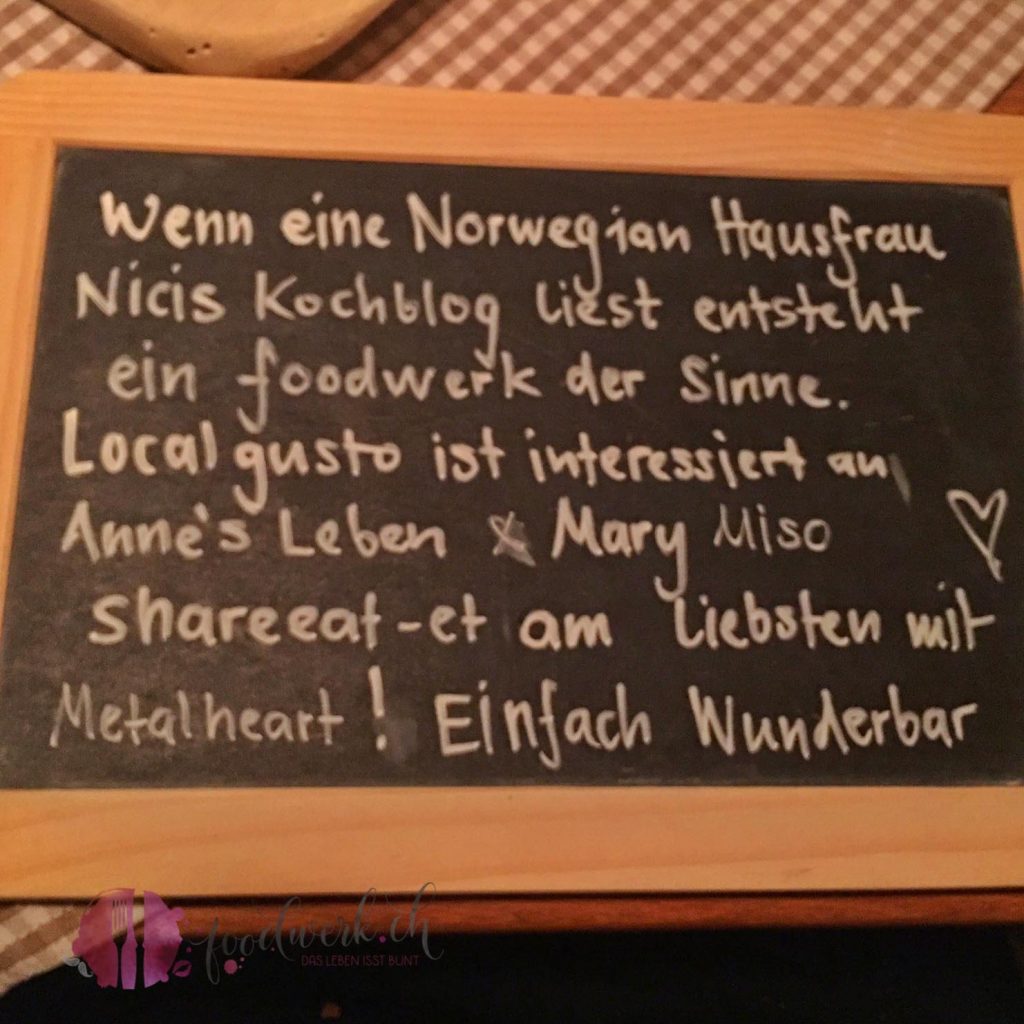 Wenn eine Norwegian Hausfrau
Nicis Kochblog liest entsteht
ein foodwerk der Sinne.
Localgusto ist interessiert an
Anne's Leben & Mary Miso ♡
shareeat-et am liebsten mit
Metalheart! Einfach Wunderbar
foodwerk.ch
DAS LEBEN ISST BUNT